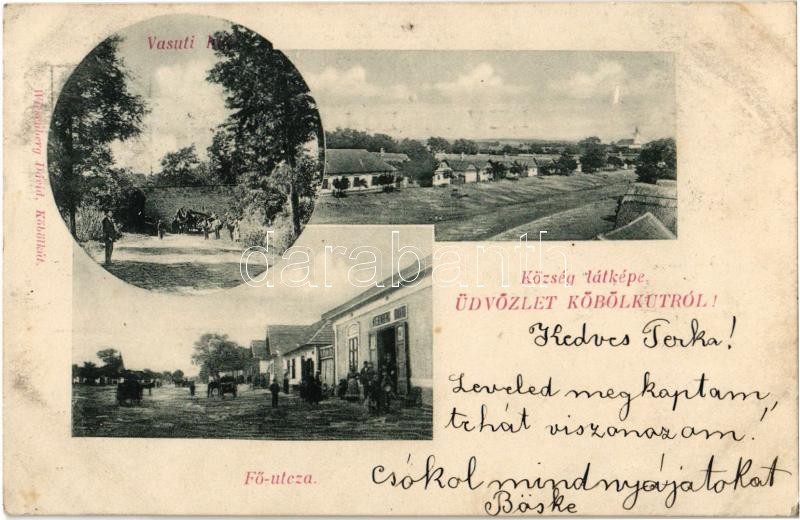 Vasuti
Weisenberg Dávid, Köbölkút.
Község látképe.
ÜDVÖZLET KÖBÖLKUTRÓL!
Fő-utcza.
Kedves Terka!
Leveled megkaptam,
tehát viszonozom!
Csókol mindnyájatokat
Böske
darabanth